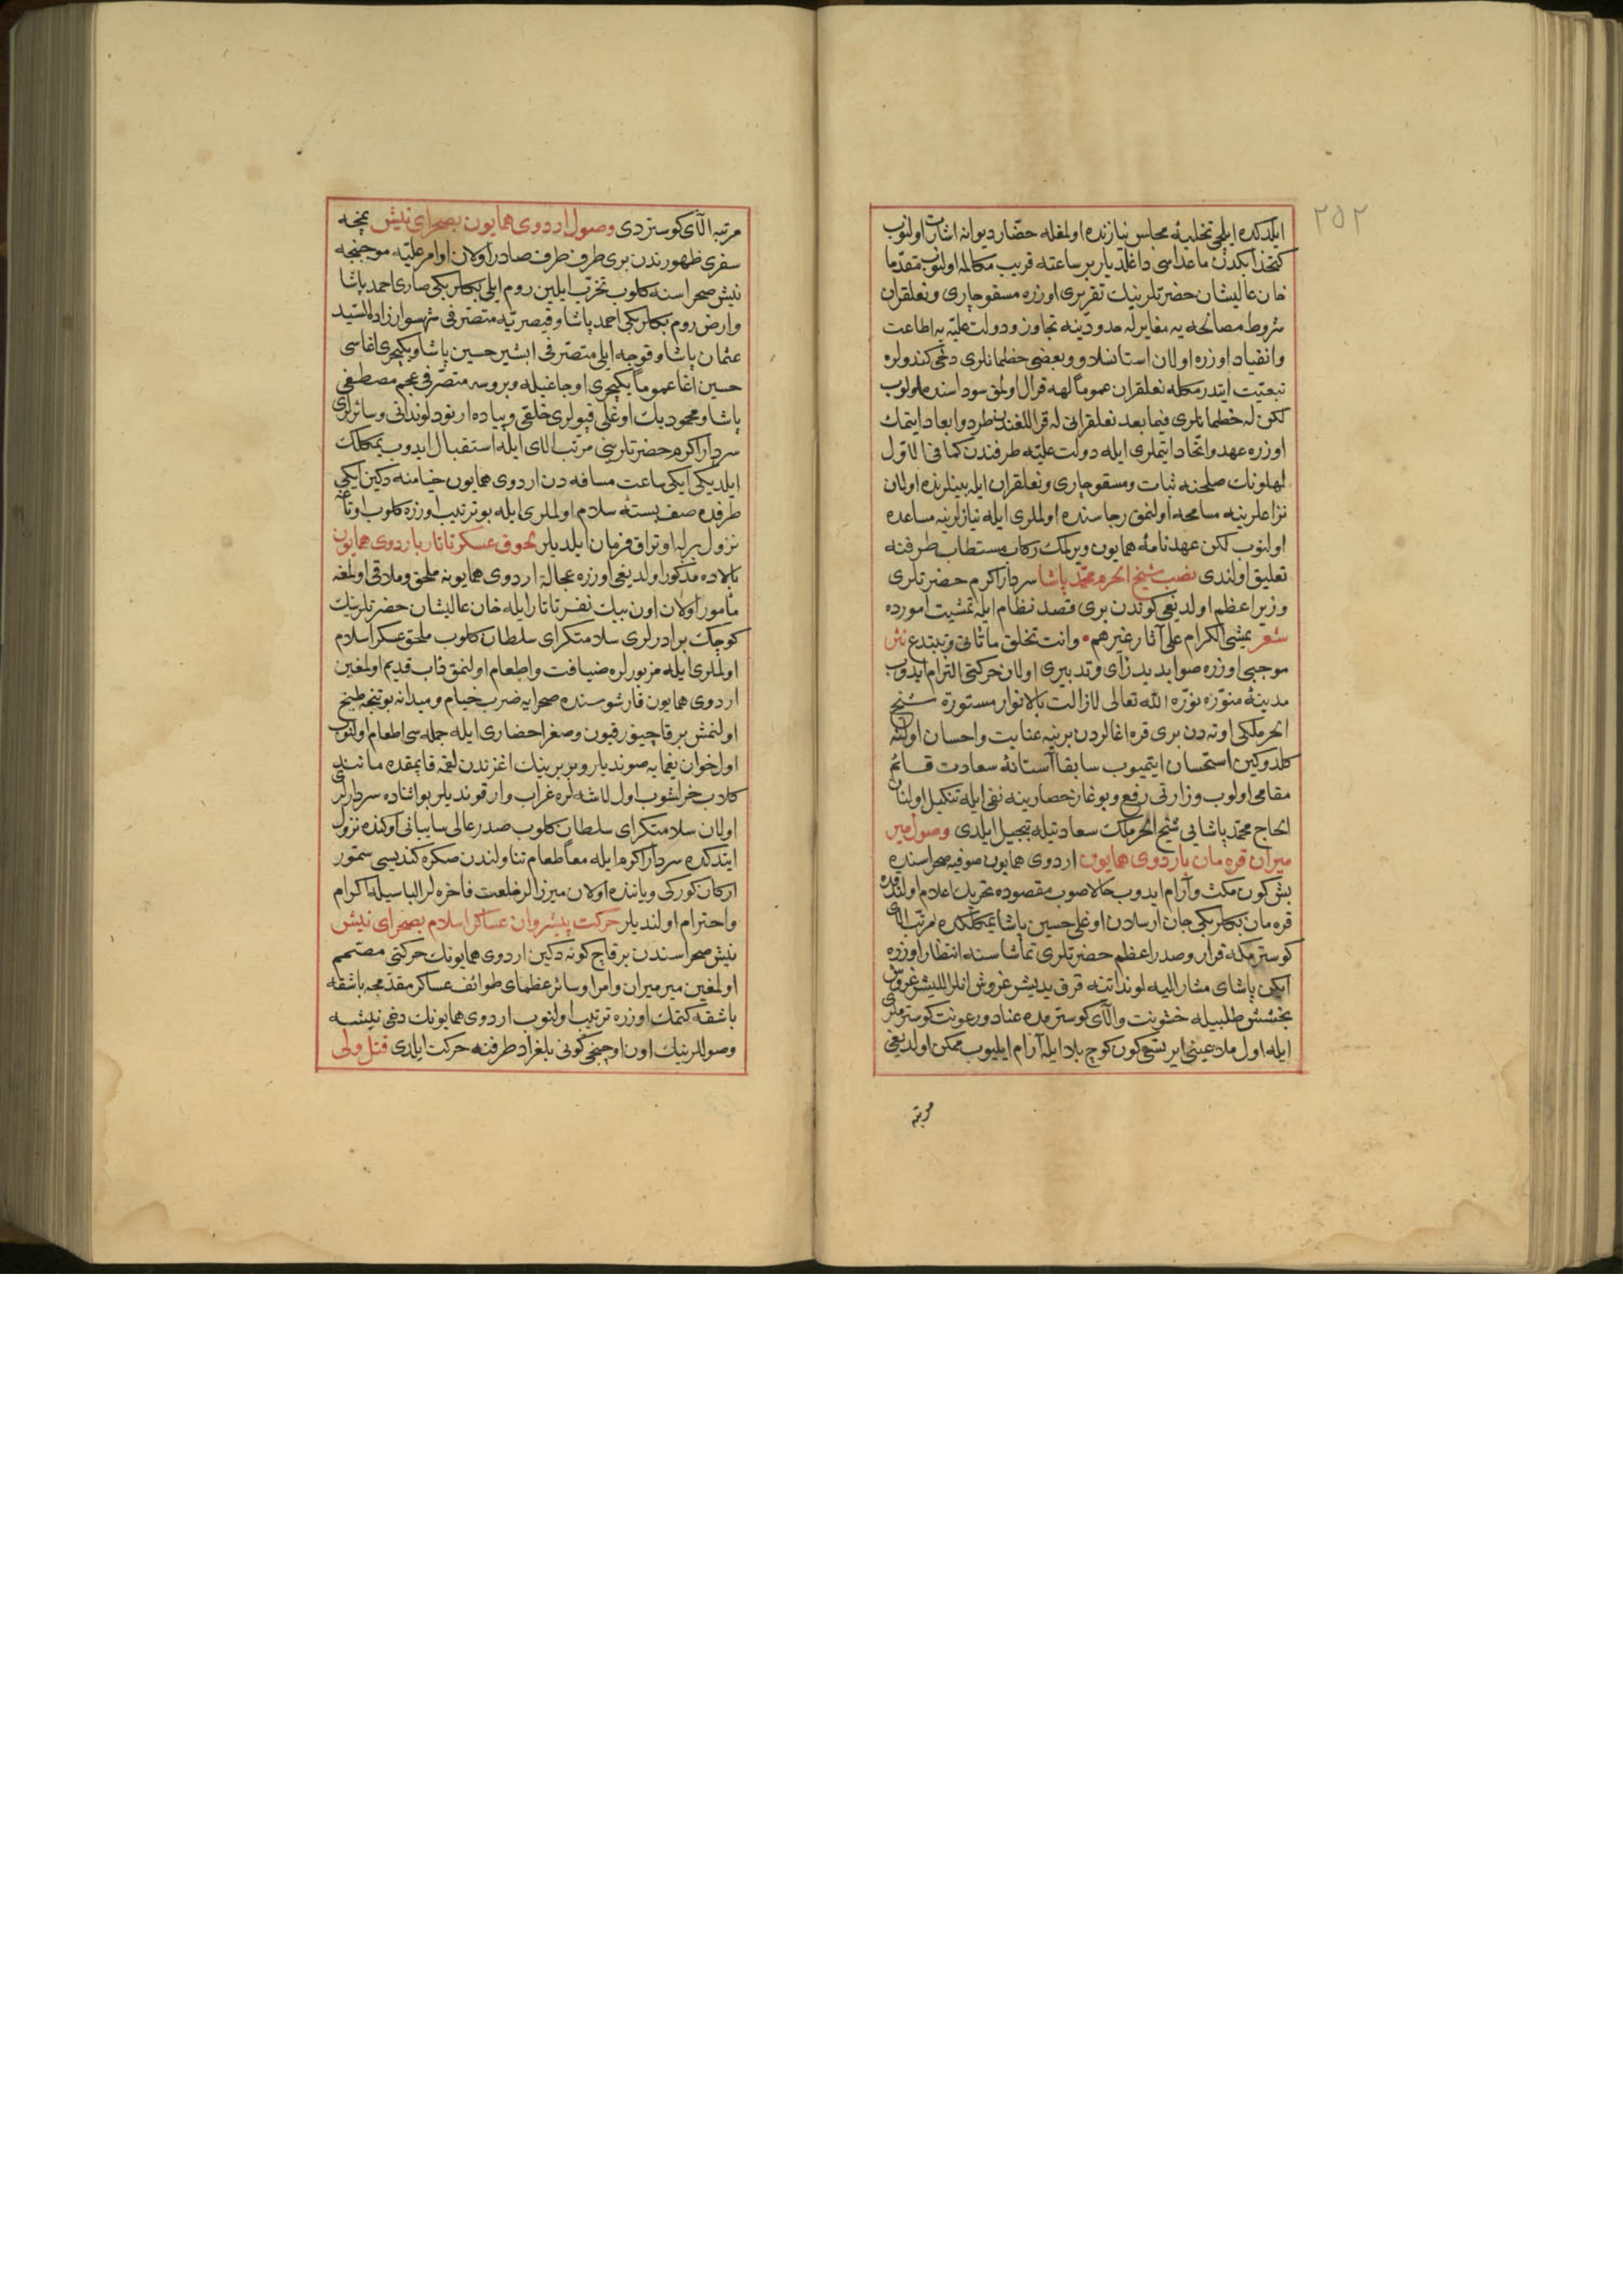 ٢٥٢
ایلدكده ایلچی تخلیۀ مجلس نیازنده اولمغله حضّار دیوانه اشارت اولنوب
كتخدا بكدن ماعداسی داغلدیلر بر ساعته قریب مكالمه اولنوب مقدّما
خان عالیشان حضرتلرینك تقریری اوزره مسقو چاری و نعلقران
شروط مصالحه یه مغایر له حدودینه تجاوز و دولت علیّه یه اطاعت
وانقیاد اوزره اولان استانسلاو و بعضی خطمانلری دخی كندولره
تبعیّت ایتدرمكله نعلقران عموماً لهه قرال اولمق سوداسنده اولوب
لكن له خطمانلری فیما بعد نعلقرانی له قراللغندن طرد و ابعاد ایتمك
اوزره عهد و اتّحاد ایتملری ایله دولت علیّه طرفندن كما فی الاوّل
لهلونك صلحنه ثبات و مسقو چاری و نعلقران ایله بینلرنده اولان
نزاعلرینه مسامحه اولنمق رجاسنده اولملری ایله نیازلرینه مساعده
اولنوب لكن عهدنامۀ همایون ویرلمك ركاب مستطاب طرفنه
تعلیق اولندی نصب شیخ الحرم محمّد پاشا سردار اكرم حضرتلری
وزیر اعظم اولدیغی كوندن بری قصد نظام ایله تمشیت اموره
شعر یمشی الكرام علی آثار غیرهم • وانت تخلق ما تأتی وتبتدع نثر
موجبی اوزره صوابدید رأی و تدبیری اولان حركتی التزام ایدوب
مدینۀ منوّره نوّره الله تعالی لازالت بالانوار مستورة شیخ
الحرملكی اوته دن بری قره اغالردن برینه عنایت و احسان اولنه
كلدوكین استحسان ایتمیوب سابقا آستانۀ سعادت قائم
مقامی اولوب وزارتی رفع و بوغاز حصارینه نفی ایله تنكیل اولنان
الحاج محمّد پاشایی شیخ الحرملك سعادتیله تبجیل ایلدی وصول میر
میران قره مان باردوی همایون اردوی همایون صوفیه صحراسنده
بش كون مكث و آرام ایدوب حالا صوب مقصوده تحریك اعلام اولندقده
قره مان بكلربكی جان ارسلان اوغلی حسین پاشا یمكلكده مرتّب الای
كوسترمكه قرار و صدر اعظم حضرتلری تماشاسنه انتظار اوزره
ایكن پاشای مشار الیه لونداتنه قرق یدیشر غروش انلر اللیشر غروش
بخشش طلبیله خشونت و الآی كوسترمده عناد و رعونت كوسترملری
ایله اول ماده عینی ایرتسی كون كوچ بلا ایله آرام ایلیوب ممكن اولدیغی
مرتبه
مرتبه الآی كوستردی وصول اردوی همایون بصحرای نیش نمچه
سفری ظهورندن بری طرف طرف صادر اولان اوامر علیّه موجبنجه
نیش صحراسنه كلوب تحزّب ایلین روم ایلی بكلربكی صاری احمد پاشا
وارض روم بكلربكی احمد پاشا و قیصریّه متصرّفی شهسوار زاده السّید
عثمان پاشا و قوجه ایلی متصرّفی ابشیر حسین پاشا و یكیچری اغاسی
حسین اغا عموماً یكیچری اوجاغیله و بروسه متصرّفی عجم مصطفی
پاشا و محمود بك اوغلی قپولری خلقی و پیاده ارنود لونداتی و سائرلری
سردار اكرم حضرتلرینی مرتّب الای ایله استقبال ایدوب یمكلك
ایلدیكی ایكی ساعت مسافه دن اردوی همایون خیامنه دكین ایكی
طرفده صف بسته سلام اولملری ایله بو ترتیب اوزره كلوب اوتاغه
نزول برله اوتراق فرمان ایلدیلر لحوق عسكر تاتار باردوی همایون
بالاده مذكور اولدیغی اوزره عجالة اردوی همایونه ملحق و ملاقی اولمغه
مأمور اولان اون بیك نفر تاتار ایله خان عالیشان حضرتلرینك
كوچك برادرلری سلامتكرای سلطان كلوب ملحق عسكر اسلام
اولملری ایله مزبورلره ضیافت و اطعام اولنمق داب قدیم اولمغین
اردوی همایون قارشوسنده صحرایه ضرب خیام و میدانه بوتنجه طبخ
اولنمش بر قاچیوز قیون و صغر احضاری ایله جمله سی اطعام اولنوب
اول خوان یغمایه صوندیلر و بربرینك اغزندن لقمه قاپمقده مانند
كلاب خراشوب اول لاشه لره غراب وار قوندیلر بو اثناده سردارلری
اولان سلامتكرای سلطان كلوب صدر عالی سایبانی اوكنده نزول
ایتدكده سردار اكرم ایله معاً طعام تناولندن صكره كندیسی سمّور
اركان كوركی و یاننده اولان میرزالر خلعت فاخره لر الباسیله اكرام
واحترام اولندیلر حركت پیشروان عساكر اسلام بصحرای نیش
نیش صحراسندن بر قاچ كونه دكین اردوی همایونك حركتی مصمّم
اولمغین میر میران و امرا و سائر عظمای طوائف عساكر مقدّمجه باشقه
باشقه كتمك اوزره ترتیب اولنوب اردوی همایونك دخی نیشه
وصوللرینك اون اوچنجی كونی بلغراد طرفنه حركت ایلدی قتل ولی